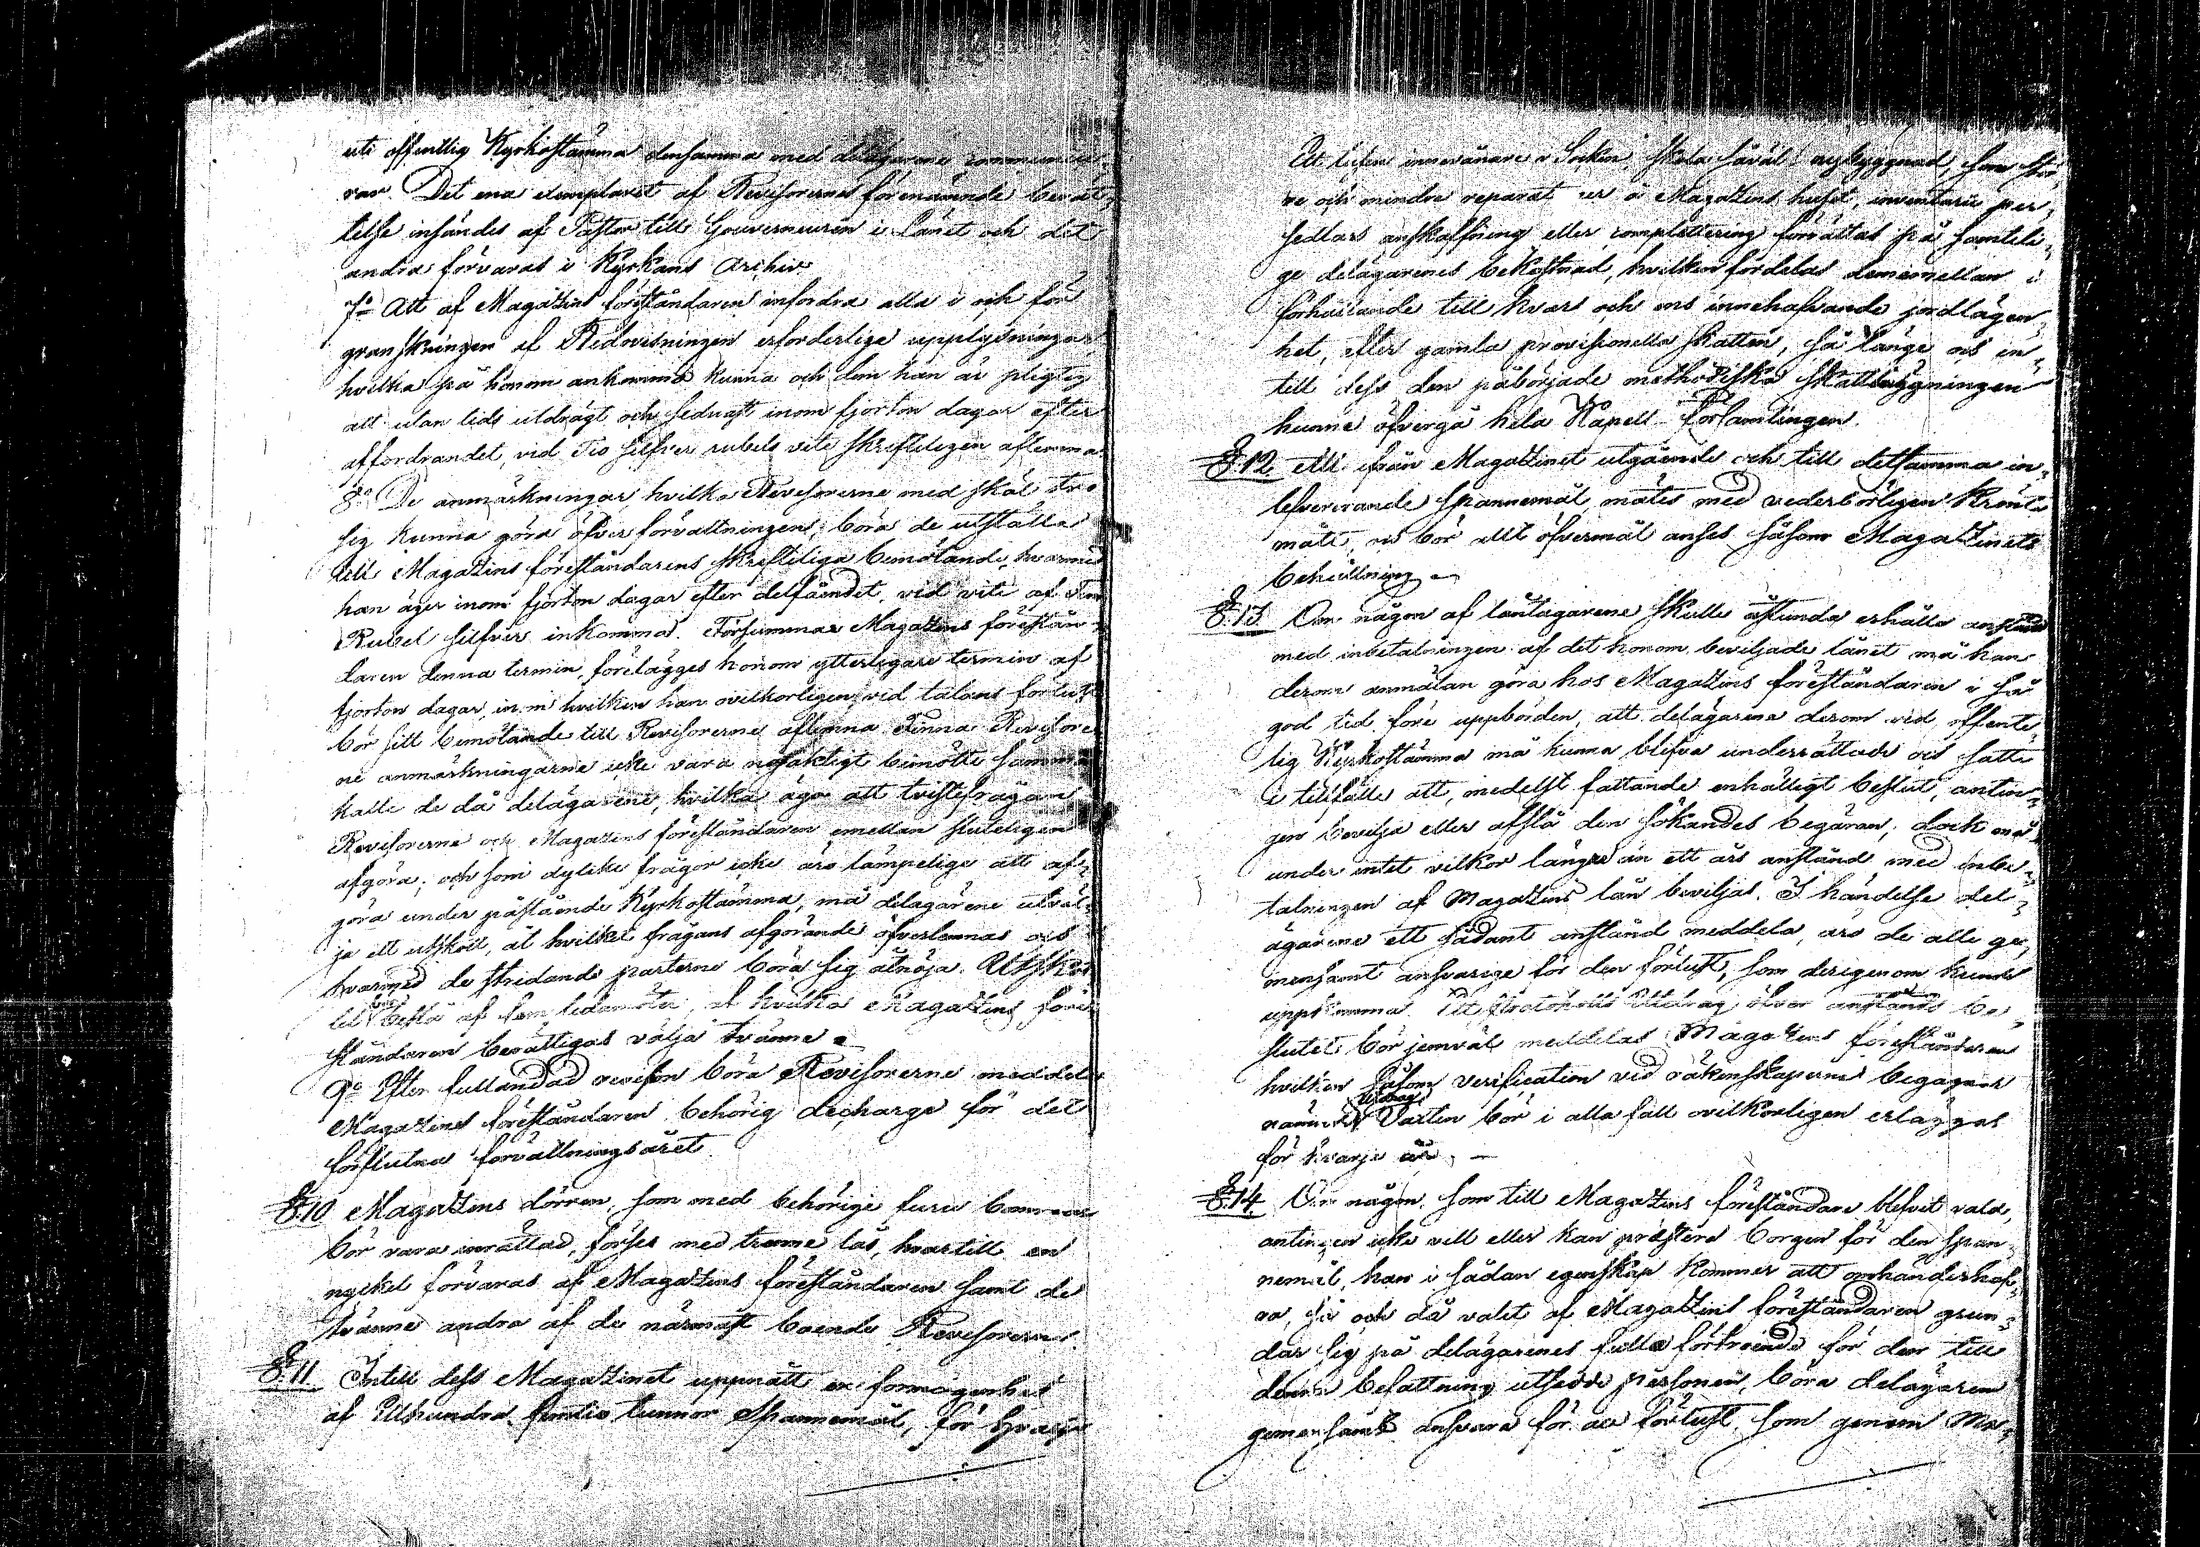 uti offentlig Kyrkostämma densamma med delägarene communice¬
rar. Det ena exemplaret af Revisorernes förenämnde berät¬
telse insändes af Pastor till Gouverneuren i Länet och det
andra förvaras i Kyrkans Archiv
7:o Att af Magazins föreståndaren infordra alla i och för
granskningen af Redovisningen erforderlige upplysningar
hvilka på honom ankomma kunna och dem han är pligtig
att utan tids utdrägt och sednast inom fjorton dagar efter
affordrandet, vid Tio silfver rubels vite skrifteligen aflemna
8:o De anmärkningar, hvilka Revisorerne med skäl tro
sig kunna göra öfver förvaltningen, böra de utställa
till Magazins föreståndarens skrifteliga bemötande, hvarmed
han äger inom fjorton dagar efter delfåendet, vid vite af Fem
Rubel silfver inkomma. Försummar Magazins förestån¬
daren denna termin, förelägges honom ytterligare termin af
fjorton dagar, inom hvilken han ovilkorligen, vid talans förlust
bör sitt bemötande till Revisorerne aflemna Finna Revisorer
ne anmärkningarne icke vara nöjaktigt bemötte samman
kalle de då delägarene, hvilka äga att tvistefrågan
Revisorerne och Magazins föreståndaren emellan sluteligen
afgöra; och som dylike frågor icke äro lämpelige att af¬
göra under påstående Kyrkostämma, må delägarene utväl¬
ja ett utskott, åt hvilket frågans afgörande öfverlemnas och
hvarmed de stridande parterne böra sig åtnöja. Utskot
tet bör bestå af fem ledamöter, af hvilka Magazins före
ståndaren berättigas välja tvänne.
9:o Efter fulländad revision böra Revisorerne meddela
Magazins föreståndaren behörig decharge för det
förflutna förvaltningsåret
§.10 Magazins dörren, som med behörige
bör vara inrättad, förses med trenne lås, hvartill en
nyckel förvaras af Magazins föreståndaren samt de
tvänne andra af de närmast boende Revisorerne.
§.11. Intill dess Magazinet uppnått en förmögenhet
af Ett hundra femtio tunnor Spannemål, för hvarje
innevånare i Socken, skola såväl nybyggnad, som stör¬
re och mindre reparationer å Magazins huset, inventarii per¬
sedlars anskaffning eller complettering förrättas på samteli¬
ge delägarenes bekostnad, hvilken fördelas demimellan i
förhållande till hvars och ens innehafvande jordlägen¬
het, efter gamla provisionella skatten, så länge och in¬
till dess den påbörjade methodiska skattläggningen
hunne öfvergå hela Kapell-församlingen.
§.12 Allt ifrån Magazinet utgående och till detsamma in¬
lefvererande Spannemål, mätes med vederbörligen krönta
mått, och bör allt öfvermål anses såsom Magazinets
behållning.
§.13. Om någon af låntagarene skulle åstunda erhålla anstånd
med inbetalningen af det honom beviljade lånet må han
derom anmälan göra hos Magazins föreståndaren i så
god tid före uppbörden, att delägarena derom vid offent¬
lig Kyrkostämma må kunna blifva underrättade och satte
i tillfälle att, medelst fattande enhälligt beslut, antin¬
gen bevilja eller afslå den sökandes begäran; dock må
under intet vilkor längre än ett års anstånd med inbe¬
talningen af Magazins lån beviljas. I händelse del¬
ägarene ett sådant anstånd meddela, äro de alle ge¬
mensamt ansvarige för den förlust, som derigenom kunde
uppkomma. Ett Protokolls Utdrag öfver anstånds be¬
slutet bör jemväl meddelas Magazins föreståndaren
hvilken såsom verification vid räkenskapernes begagnar
nämnde Utdrag. Växten bör i alla fall ovilkorligen erläggas
för hvarje år. —
§.14. Om någon, som till Magazins föreståndare blifvit vald,
antingen icke vill eller kan præstera borgen för den span¬
nemål, han i sådan egenskap kommer att omhänderhaf¬
va, så och då valet af Magazins föreståndaren grun¬
dar sig på delägarenes fulla förtroende för den till
denna befattning utsedde personen, böra delägaren
gemensamt ansvara för all förlust, som genom Ma¬